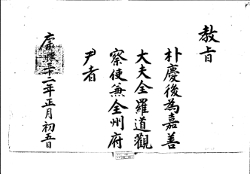 教旨
朴慶後為嘉善
大夫全羅道觀
察使兼全州府
尹者
康熙二十二年正月初五日